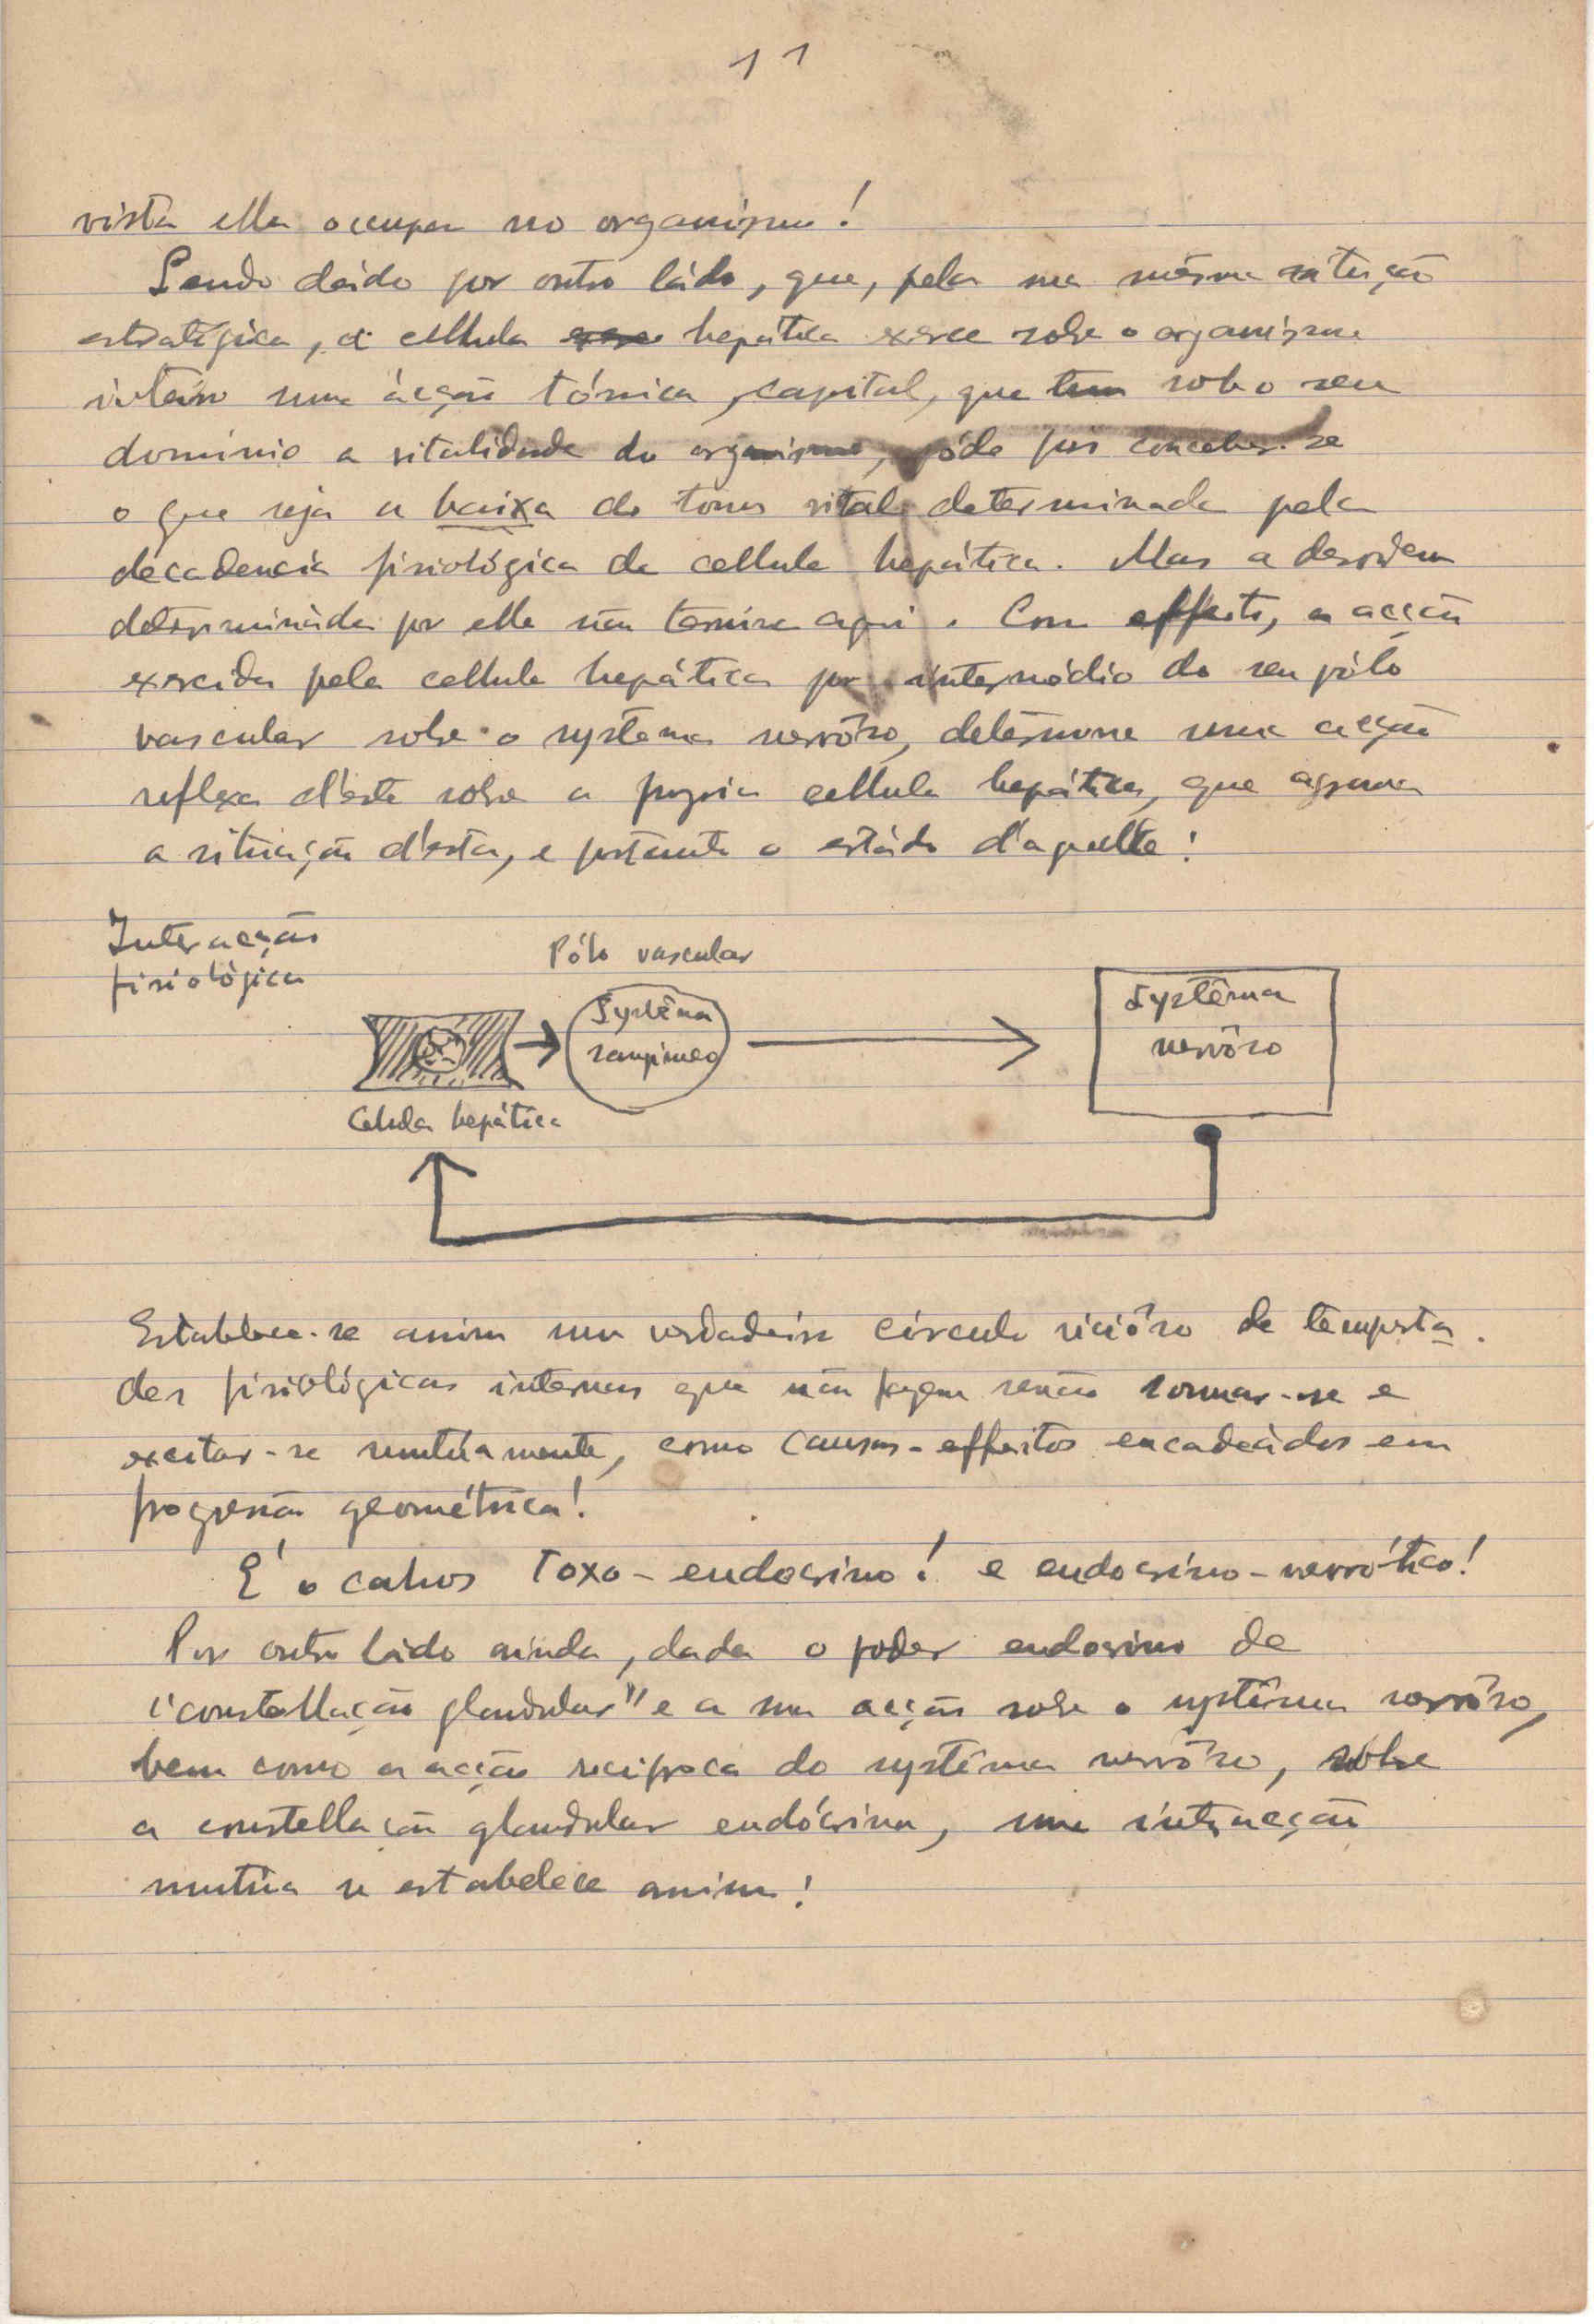 11
vista ella occupa no organismo!
Sendo dádo por outro ládo, que, pela sua mésma situação
estratégica, a cellula hepática exerce sobre o organismo
inteiro uma ácção tónica, capital, que tem sob o seu
dominio a vitalidade do organismo, póde pois conceber-se
o que seja a baixa do tonus vital determinada pela
decadencia fisiológica da cellula hepática. Mas a desordem
determináda por ella não termina aqui. Com effeito, a acção
exercida pela cellula hepática por intermédio do seu pólo
vascular sobre o systema nervôso, determina uma acção
reflexa d'este sobre a propria cellula hepática, que agrava
a situação d'esta, e portanto o estádo d'aquelle!
Interacção
fisiológica
Pólo vascular
Systêma
sanguineo
Systêma
nervôso
Celula hepática
Establece-se assim um verdadeiro círculo viciôso de tempesta-
des fisiológicas internas que não fazem senão sommar-se e
excitar-se mutúamente, como causas-effeitos encadeádos em
progressão geométrica!
É o cahos Toxo-endocrino! e endocríno-nervótico!
Por outro ládo ainda, dada o poder endocrino de
"constellação glandular" e a sua acção sobre o systêma nervôso,
bem como a acção reciproca do systêma nervôso, sobre
a constellação glandular endócrina, uma interacção
mutúa se estabelece assim!